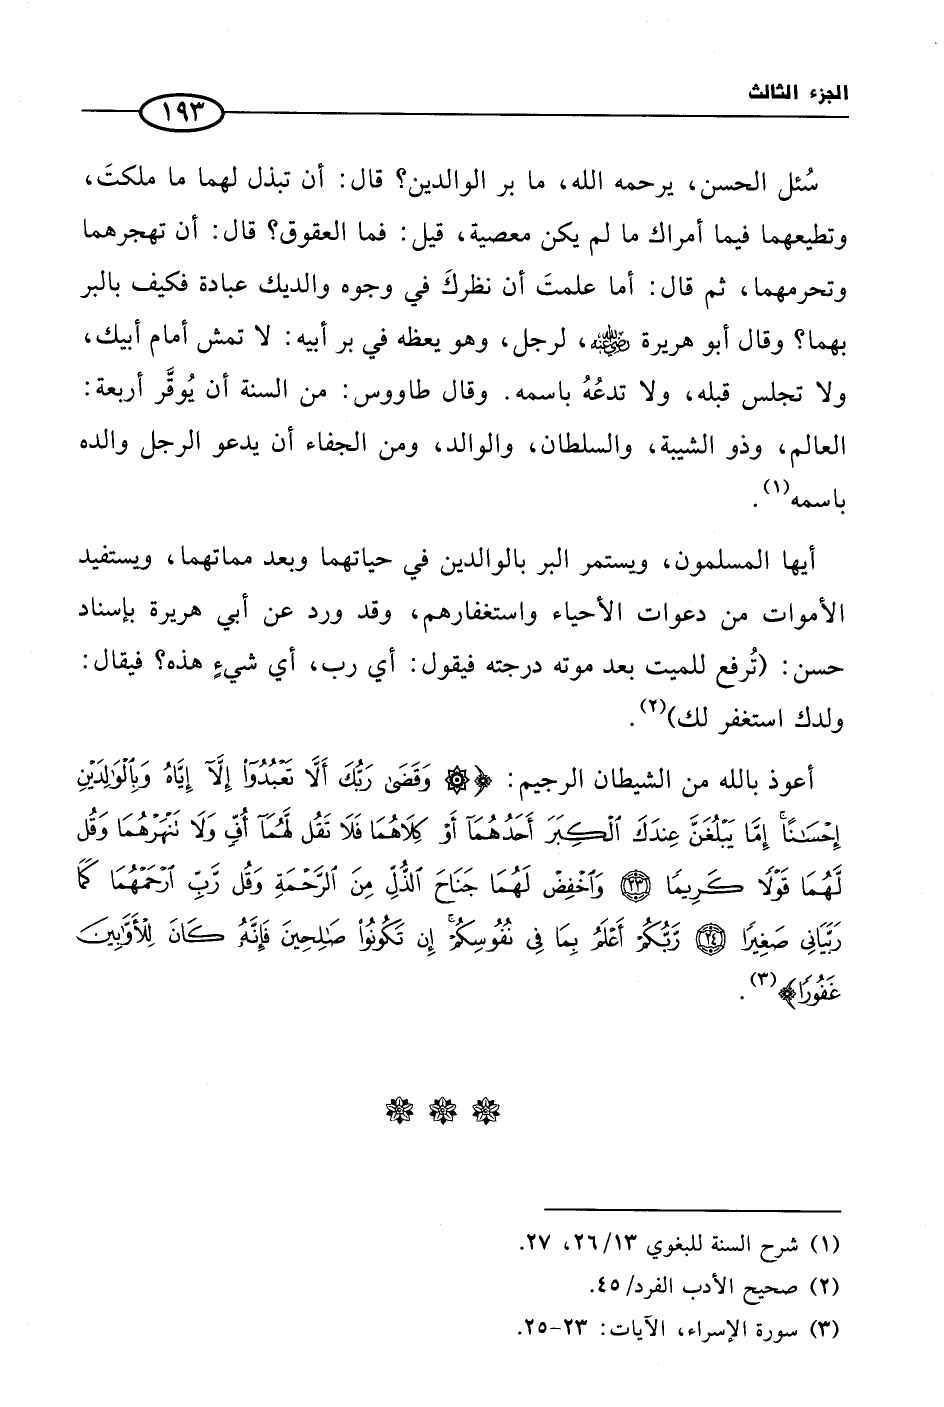 الجزء الثالث
١٩٣
سُئل الحسن، يرحمه الله، ما بر الوالدين؟ قال: أن تبذل لهما ما ملكتَ،
وتطيعهما فيما أمراك ما لم يكن معصية، قيل: فما العقوق؟ قال: أن تهجرهما
وتحرمهما، ثم قال: أما علمتَ أن نظركَ في وجوه والديك عبادة فكيف بالبر
بهما؟ وقال أبو هريرة رضي الله عنه، لرجل، وهو يعظه في بر أبيه: لا تمش أمام أبيك،
ولا تجلس قبله، ولا تدعُهُ باسمه. وقال طاووس: من السنة أن يُوقَّر أربعة:
العالم، وذو الشيبة، والسلطان، والوالد، ومن الجفاء أن يدعو الرجل والده
باسمه(١).
أيها المسلمون، ويستمر البر بالوالدين في حياتهما وبعد مماتهما، ويستفيد
الأموات من دعوات الأحياء واستغفارهم، وقد ورد عن أبي هريرة بإسناد
حسن: (تُرفع للميت بعد موته درجته فيقول: أي رب، أي شيءٍ هذه؟ فيقال:
ولدك استغفر لك)(٢).
أعوذ بالله من الشيطان الرجيم: ﴿۞ وَقَضَىٰ رَبُّكَ أَلَّا تَعْبُدُوٓا۟ إِلَّآ إِيَّاهُ وَبِٱلْوَٰلِدَيْنِ
إِحْسَـٰنًا ۚ إِمَّا يَبْلُغَنَّ عِندَكَ ٱلْكِبَرَ أَحَدُهُمَآ أَوْ كِلَاهُمَا فَلَا تَقُل لَّهُمَآ أُفٍّ وَلَا تَنْهَرْهُمَا وَقُل
لَّهُمَا قَوْلًا كَرِيمًا ٢٣ وَٱخْفِضْ لَهُمَا جَنَاحَ ٱلذُّلِّ مِنَ ٱلرَّحْمَةِ وَقُل رَّبِّ ٱرْحَمْهُمَا كَمَا
رَبَّيَانِى صَغِيرًا ٢٤ رَّبُّكُمْ أَعْلَمُ بِمَا فِى نُفُوسِكُمْ ۚ إِن تَكُونُوا۟ صَـٰلِحِينَ فَإِنَّهُۥ كَانَ لِلْأَوَّٰبِينَ
غَفُورًا﴾(٣).
(١) شرح السنة للبغوي ١٣/ ٢٦، ٢٧.
(٢) صحيح الأدب الفرد/ ٤٥.
(٣) سورة الإسراء، الآيات: ٢٣-٢٥.